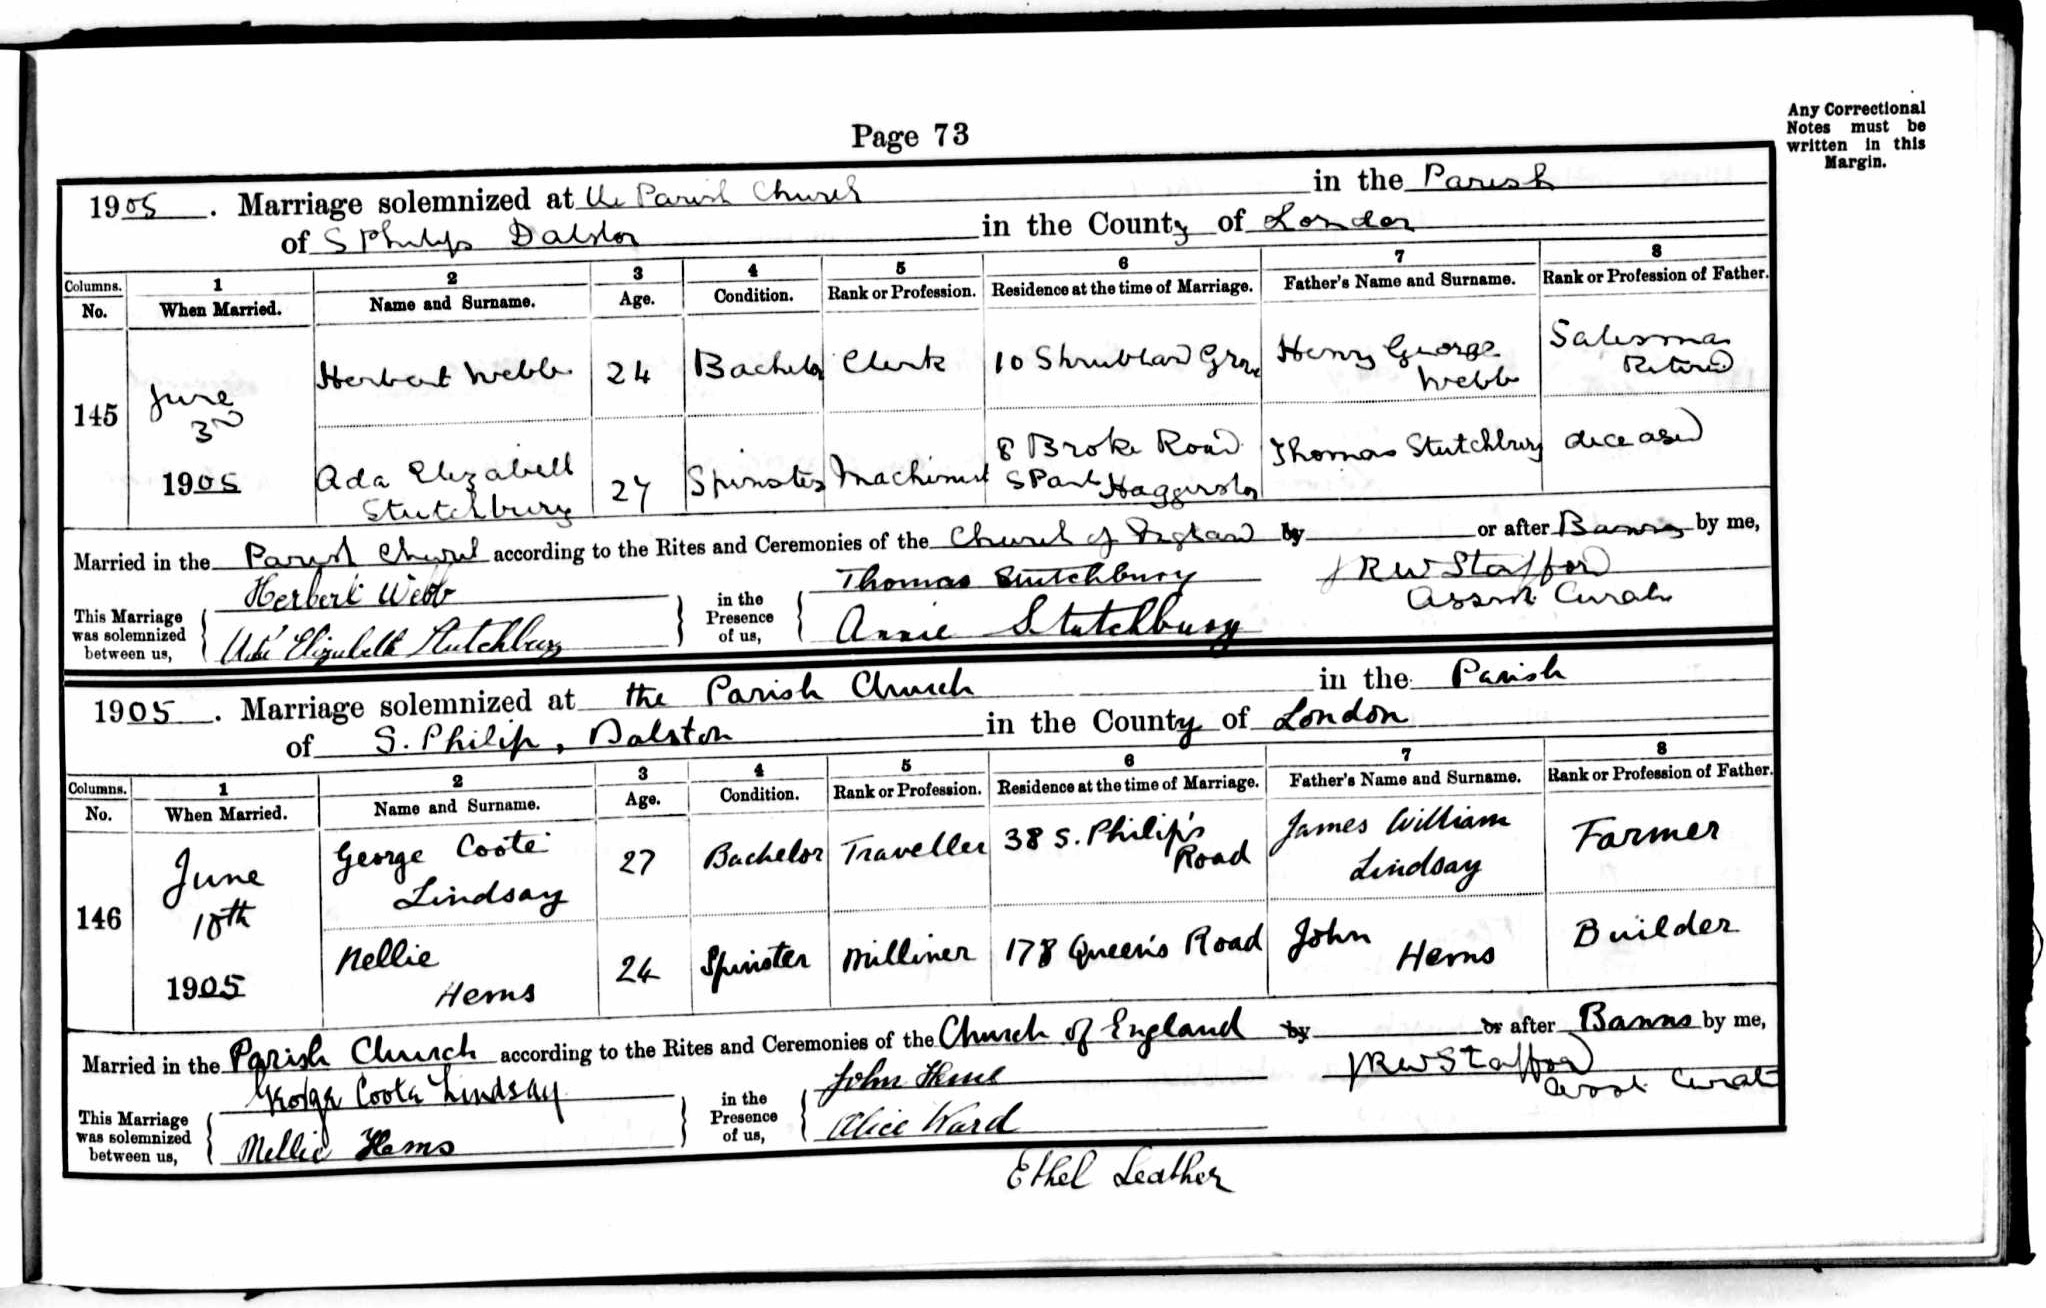 Page 73
Any Correctional
Notes must be
written in this
Margin.
1905. Marriage solemnized at the Parish Church in the Parish
of S Philips Dalston in the County of London
Columns. 1 2 3 4 5 6 7 8
No. When Married. Name and Surname. Age. Condition. Rank or Profession. Residence at the time of Marriage. Father's Name and Surname. Rank or Profession of Father.
145 June 3rd 1905
Herbert Webb 24 Bachelor Clerk 10 Shrubland Grove Henry George Webb Salesman Retired
Ada Elizabeth Stutchbury 27 Spinster Machinist 8 Broke Road S Pauls Haggerston Thomas Stutchbury deceased
Married in the Parish Church according to the Rites and Ceremonies of the Church of England by or after Banns by me,
Herbert Webb Thomas Stutchbury J R W Stafford
This Marriage was solemnized between us, in the Presence of us, Assist. Curate
Ada Elizabeth Stutchbury Annie Stutchbury
1905. Marriage solemnized at the Parish Church in the Parish
of S. Philip, Dalston in the County of London
Columns. 1 2 3 4 5 6 7 8
No. When Married. Name and Surname. Age. Condition. Rank or Profession. Residence at the time of Marriage. Father's Name and Surname. Rank or Profession of Father.
146 June 1905
George Coote Lindsay 27 Bachelor Traveller 38 S. Philip's Road James William Lindsay Farmer
Nellie Hems 24 Spinster Milliner 178 Queen's Road John Hems Builder
Married in the Parish Church according to the Rites and Ceremonies of the Church of England by or after Banns by me,
George Coote Lindsay John Hems J R W Stafford
This Marriage was solemnized between us, in the Presence of us, Asst. Curate
Nellie Hems Alice Ward
Ethel Leather